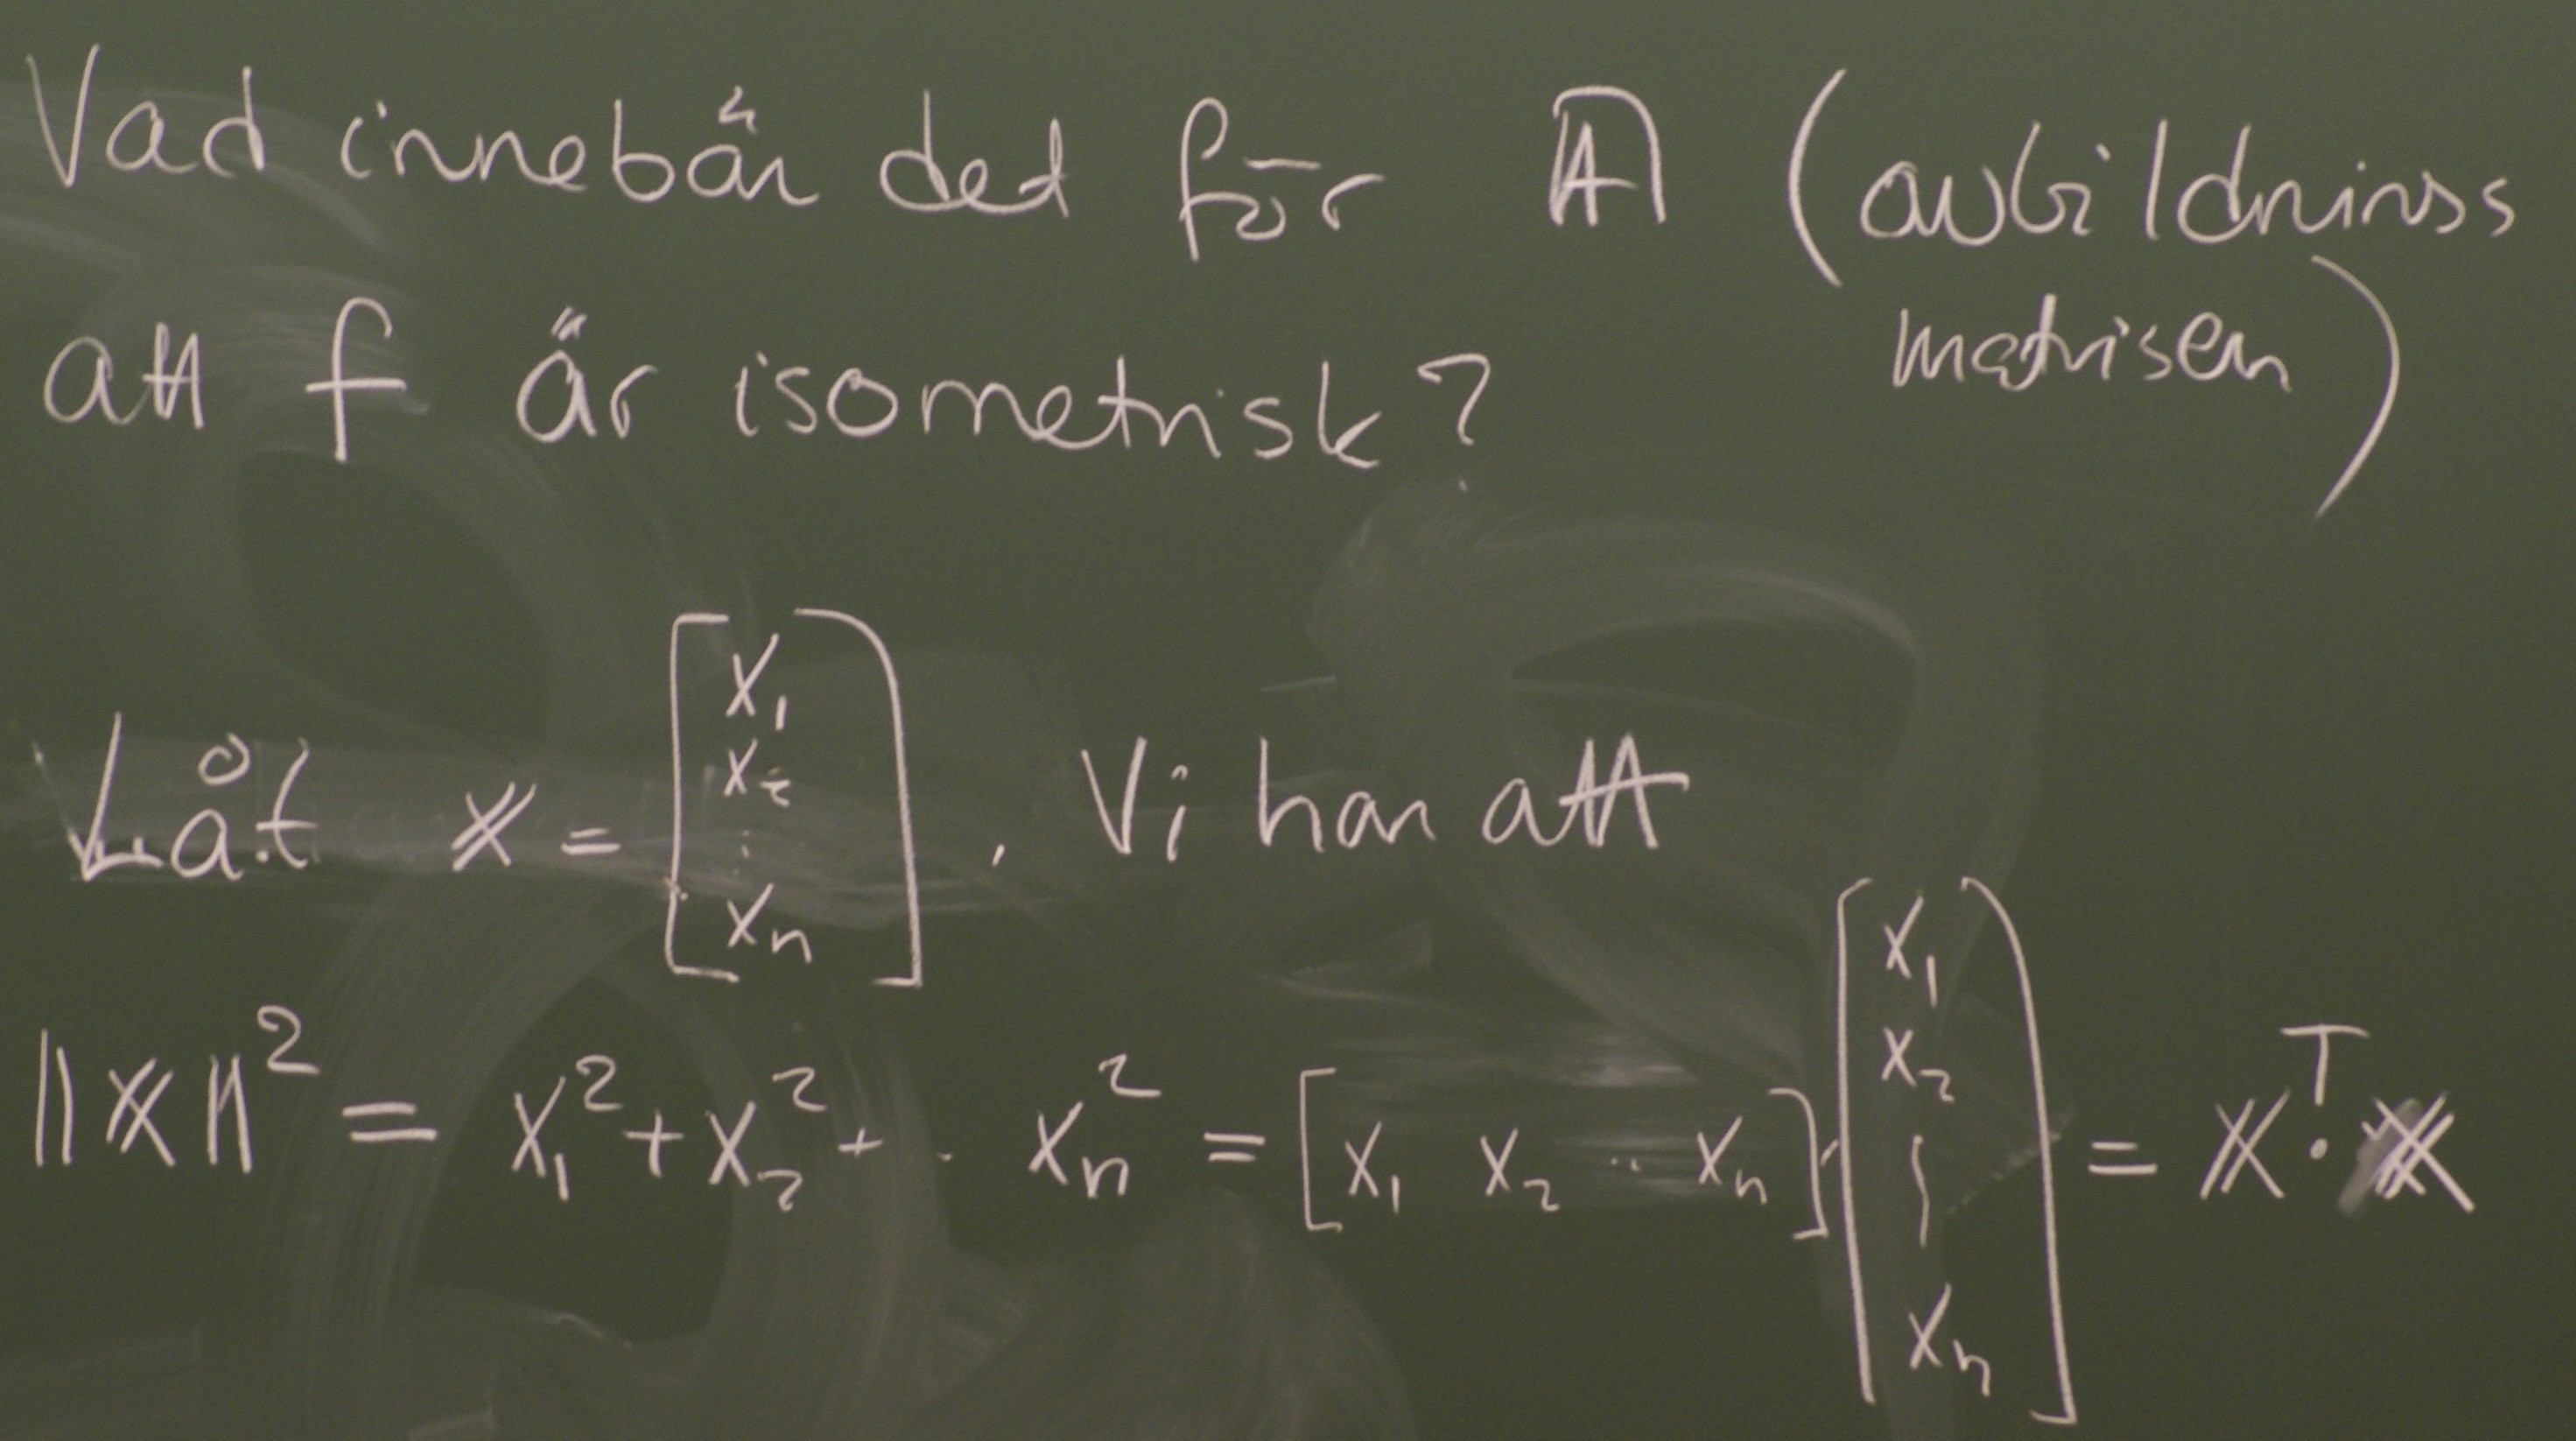 Vad innebär det för A (avbildnings
matrisen)
att f är isometrisk?
Låt x = [x₁ x₂ ⋮ xₙ]. Vi har att
||x||² = x₁² + x₂² + .. xₙ² = [x₁ x₂ .. xₙ] · [x₁ x₂ ⋮ xₙ] = xᵀ · x